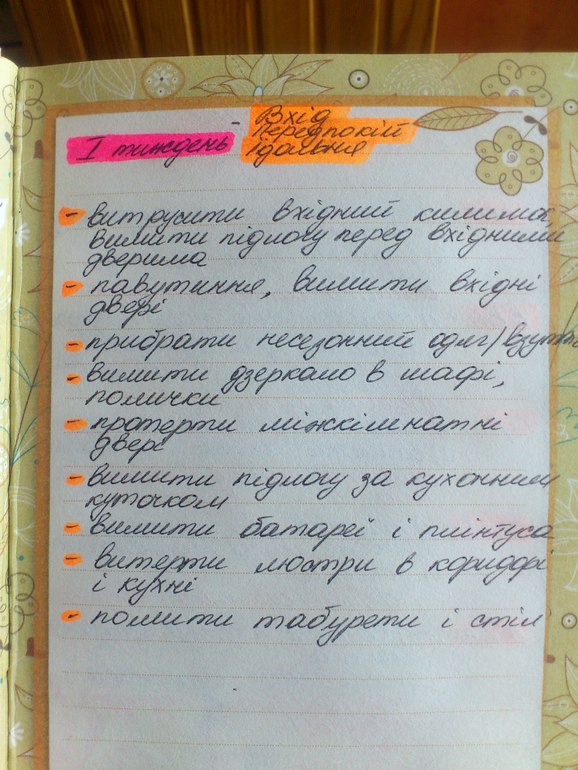 І тиждень - Вхід
Передпокій
Їдальня
- витрусити вхідний килимок,
вимити підлогу перед вхідними
дверима
- павутиння, вимити вхідні
двері
- прибрати несезонний одяг/взуття
- вимити дзеркало в шафі,
полички
- протерти міжкімнатні
двері
- вимити підлогу за кухонним
куточком
- вимити батареї і плінтуса
- витерти люстри в коридорі
і кухні
- помити табурети і стіл